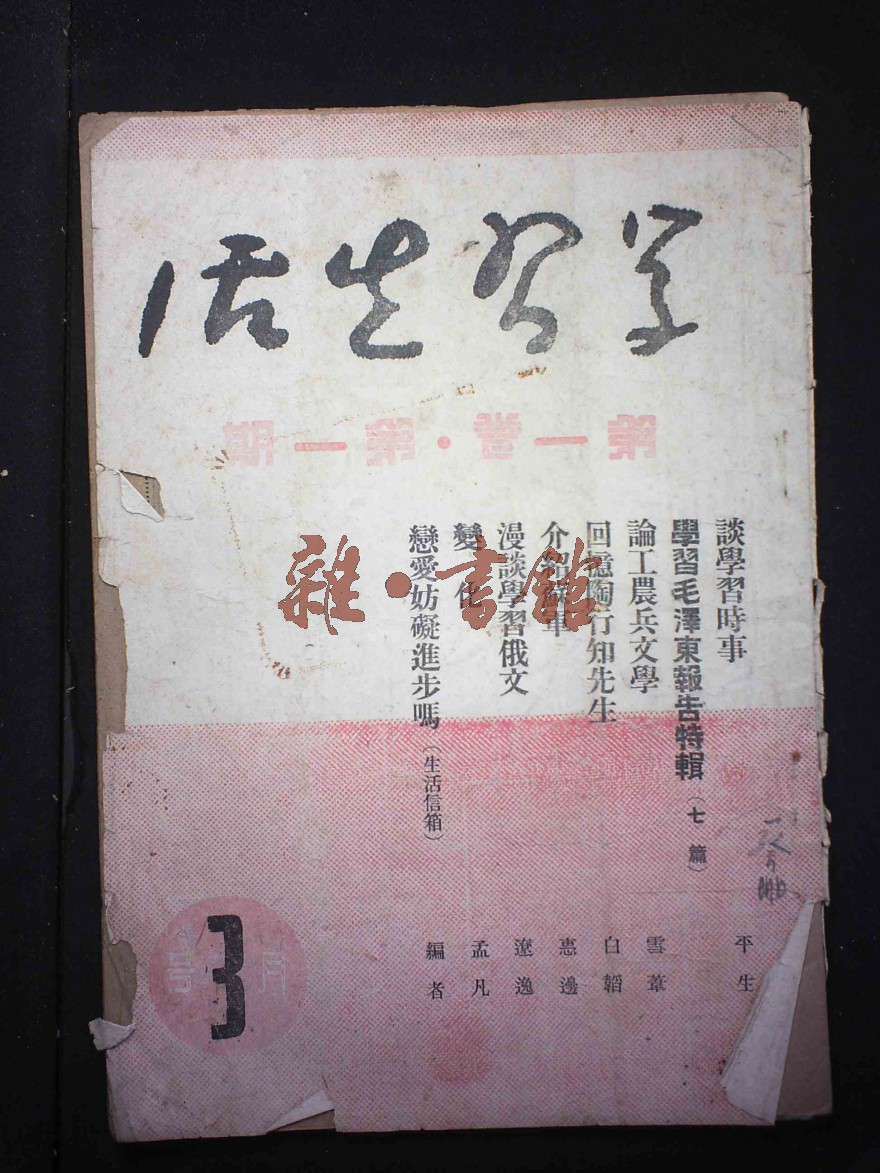 学习生活
第一卷·第一期
談學習時事 平生
學習毛澤東報告特輯（七篇）
論工農兵文學 雪葦
回憶陶行知先生 白韜
介紹蘇軍 惠邊
漫談學習俄文 遼逸
變化 孟凡
戀愛妨礙進步嗎（生活信箱） 編者
雜·書館
3月号